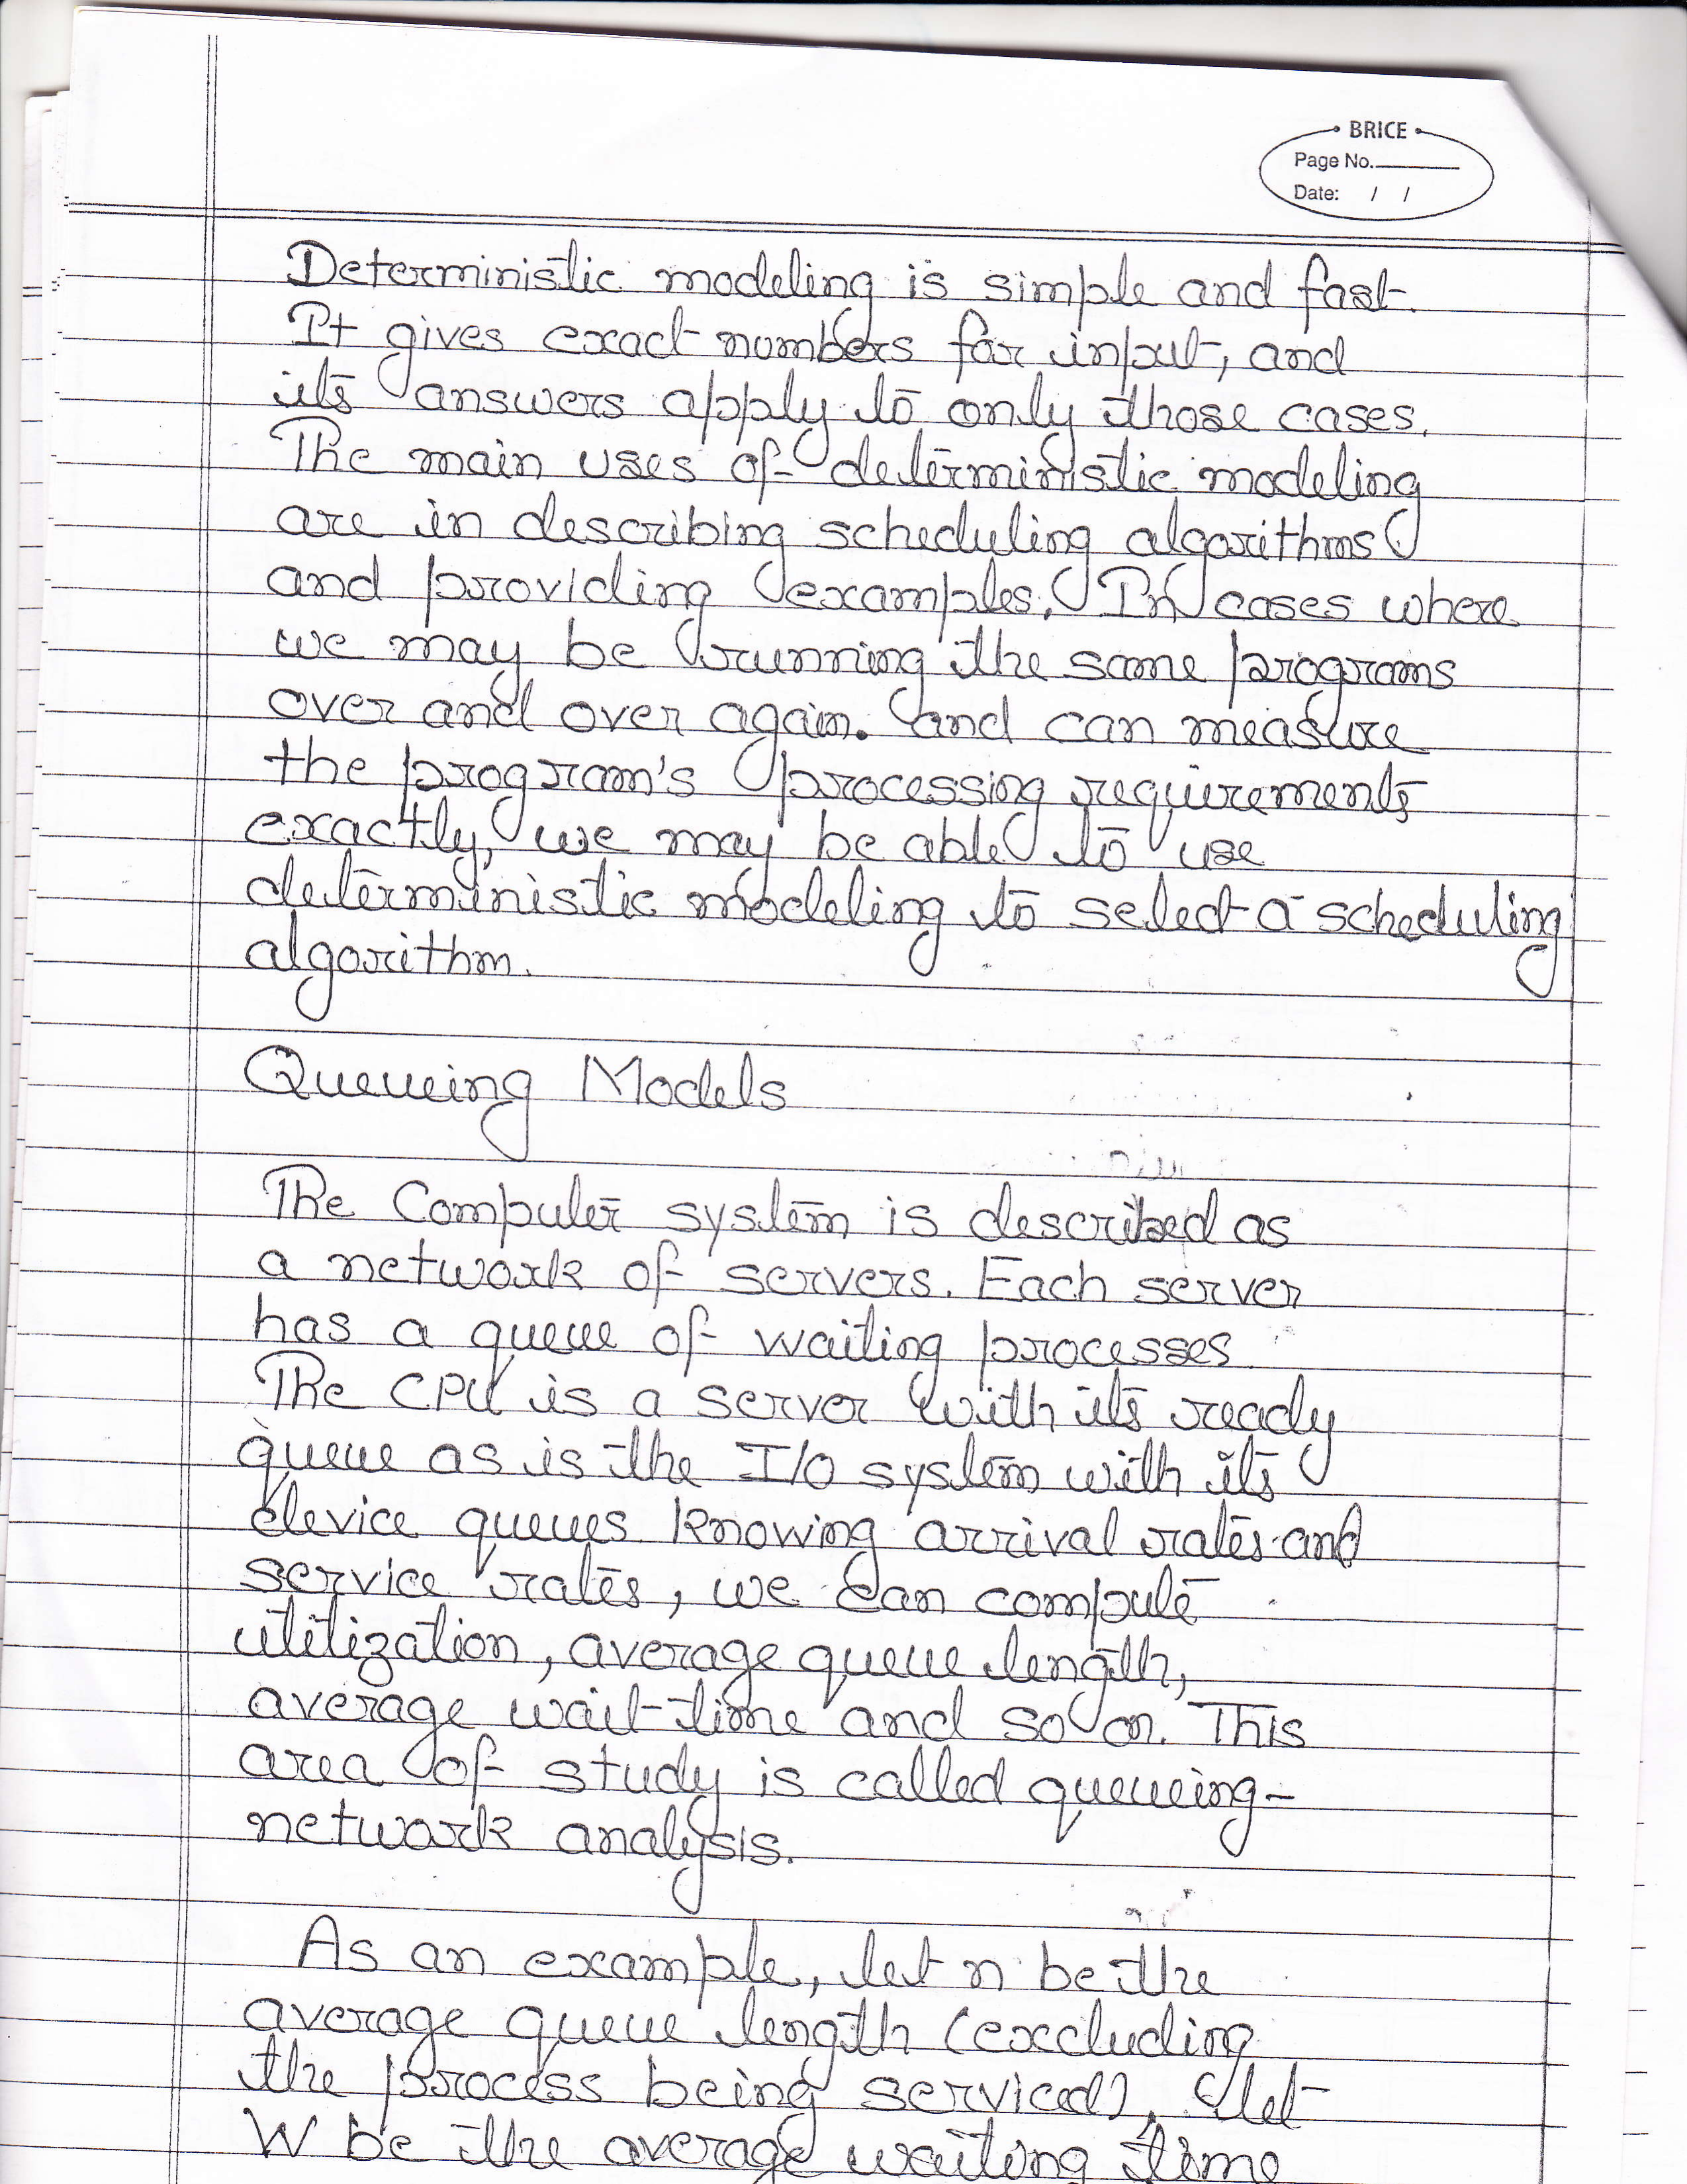 BRICE
Page No.
Date: / /
Deterministic modeling is simple and fast.
It gives exact numbers for input, and
its answers apply to only those cases.
The main uses of deterministic modeling
are in describing scheduling algorithms
and providing examples. In cases where
we may be running the same programs
over and over again. and can measure
the program's processing requirements
exactly, we may be able to use
deterministic modeling to select a scheduling
algorithm.
Queueing Models
The Computer system is described as
a network of servers. Each server
has a queue of waiting processes
The CPU is a server with its ready
queue as is the I/O system with its
device queues knowing arrival rates and
service rates, we can compute
utilization, average queue length,
average wait time and so on. This
area of study is called queueing-
network analysis.
As an example, let n be the
average queue length (excluding
the process being serviced), let
W be the average waiting time